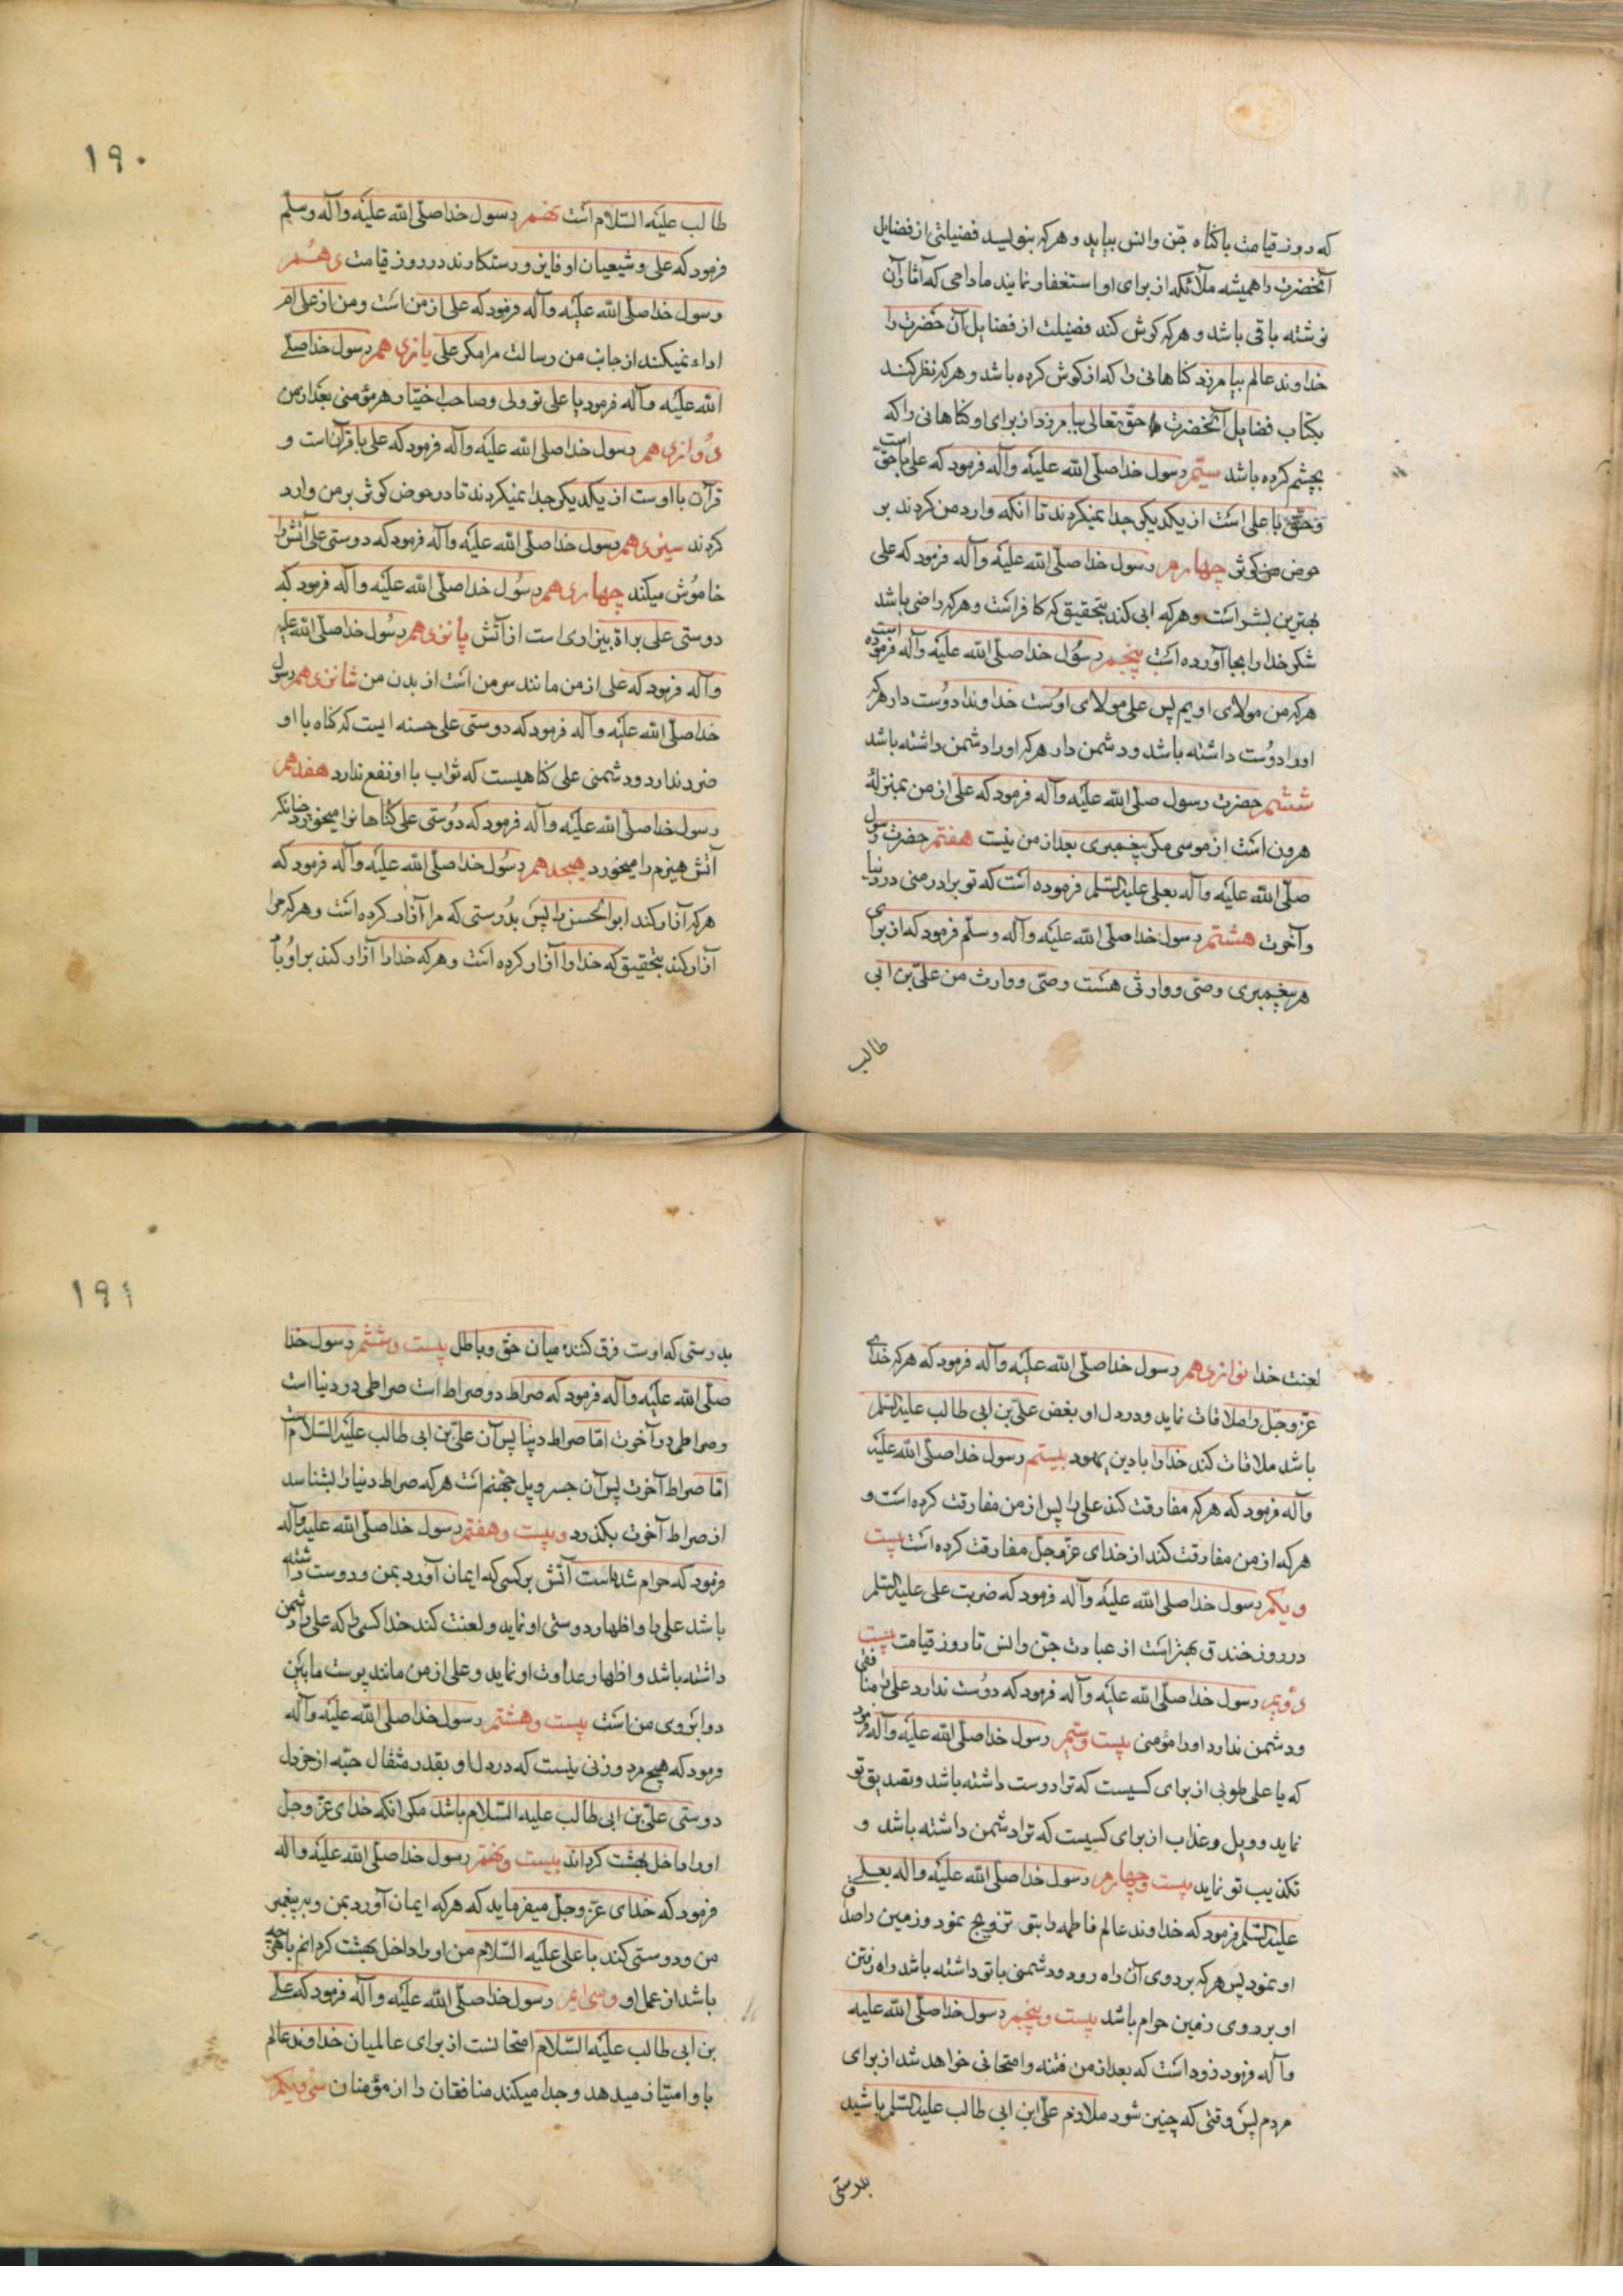 که روز قیامت با کناه جن وانس بیاید وهرکه بنویسد فضیلتی از فضایل
آنحضرت را همیشه ملائکه از برای او استغفار نمایند مادامی که آثار آن
نوشته باقی باشد و هرکه کوش کند فضیلت از فضایل آن حضرت را
خداوند عالم بیامرزد کناهانی را که از کوش کرده باشد و هرکه نظر کند
بکتاب فضایل آنحضرت حق تعالی بیامرزد از برای او کناهانی را که
بچشم کرده باشد سیّم رسول خدا صلّی الله علیه وآله فرمود که علی با حقّ است
وحقّ با علی است از یکدیکر جدا نمیکردند تا انکه وارد من کردند بر
حوض من کوثر چهارم رسول خدا صلّی الله علیه وآله فرمود که علی
بهترین بشر است وهرکه ابی کند بتحقیق که کافر است وهرکه راضی باشد
شکر خدا را بجا آورده است پنجم رسول خدا صلّی الله علیه وآله فرموده است
هرکه من مولای اویم پس علی مولای اوست خداوندا دوست دار هرکه
اورا دوست داشته باشد ودشمن دار هرکه اورا دشمن داشته باشد
ششم حضرت رسول صلّی الله علیه وآله فرمود که علی از من بمنزلهٔ
هرون است از موسی مکر پیغمبری بعد از من نیست هفتم حضرت رسول
صلّی الله علیه وآله بعلی علیه السّلم فرموده است که تو برادر منی در دنیا
وآخرت هشتم رسول خدا صلّی الله علیه وآله وسلّم فرمود که از برای
هر پیغمبری وصیّ ووارثی هست وصیّ ووارث من علیّ بن ابی
طالب
۱۹۰
طالب علیه السّلام است نهم رسول خدا صلّی الله علیه وآله وسلّم
فرمود که علی وشیعیان او فایز ورستکارند در روز قیامت دهم
رسول خدا صلّی الله علیه وآله فرمود که علی از من است ومن از علی ام
اداء نمیکند از جانب من رسالت مرا مکر علی یازدهم رسول خدا صلّی
الله علیه وآله فرمود یا علی تو ولی وصاحب اختیار هر مؤمنی بعد از من
دوازدهم رسول خدا صلی الله علیه وآله فرمود که علی با قرآن است و
قرآن با اوست از یکدیکر جدا نمیکردند تا در حوض کوثر بر من وارد
کردند سیزدهم رسول خدا صلّی الله علیه وآله فرمود که دوستی علی آتش را
خاموش میکند چهاردهم رسول خدا صلّی الله علیه وآله فرمود که
دوستی علی براة بیزاری است از آتش پانزدهم رسول خدا صلّی الله علیه
وآله فرمود که علی از من مانند سر من است از بدن من شانزدهم رسول
خدا صلّی الله علیه وآله فرمود که دوستی علی حسنه ایست که کناه با او
ضرر ندارد ودشمنی علی کناهیست که ثواب با او نفع ندارد هفدهم
رسول خدا صلّی الله علیه وآله فرمود که دوستی علی کناهان را میخورد چنانکه
آتش هیزم را میخورد هیجدهم رسول خدا صلّی الله علیه وآله فرمود که
هرکه آزار کند ابو الحسن را پس بدرستی که مرا آزار کرده است وهرکه مرا
آزار کند بتحقیق که خدا را آزار کرده است وهرکه خدا را آزار کند بر او باد
لعنت خدا نوازدهم رسول خدا صلّی الله علیه وآله فرمود که هرکه خدای
عزّوجلّ را ملاقات نماید ودر دل او بغض علیّ بن ابی طالب علیه السّلم
باشد ملاقات کند خدا را با دین یهود بیستم رسول خدا صلّی الله علیه
وآله فرمود که هرکه مفارقت کند علی را پس از من مفارقت کرده است و
هرکه از من مفارقت کند از خدای عزّوجلّ مفارقت کرده است بیست
ویکم رسول خدا صلی الله علیه وآله فرمود که ضربت علی علیه السّلم
در روز خندق بهتر است از عبادت جنّ وانس تا روز قیامت بیست
دویم رسول خدا صلّی الله علیه وآله فرمود که دوست ندارد علی را منافقی
ودشمن ندارد اورا مؤمنی بیست وسیّم رسول خدا صلّی الله علیه وآله فرمود
که یا علی طوبی از برای کسیست که ترا دوست داشته باشد وتصدیق تو
نماید وویل وعذاب از برای کسیست که ترا دشمن داشته باشد و
تکذیب تو نماید بیست وچهارم رسول خدا صلّی الله علیه واله بعلی
علیه السّلم فرمود که خداوند عالم فاطمه را بتو تزویج نمود وزمین را صداق
او نمود پس هرکه بر روی آن راه رود ودشمنی با تو داشته باشد راه رفتن
او بر روی زمین حرام باشد بیست وپنجم رسول خدا صلّی الله علیه
وآله فرمود زود است که بعد از من فتنه وامتحانی خواهد شد از برای
مردم پس وقتی که چنین شود ملازم علیّ ابن ابی طالب علیه السّلم باشید
بدرستی
۱۹۱
بدرستی که اوست فرق کننده میان حق وباطل بیست وششم رسول خدا
صلّی الله علیه وآله فرمود که صراط دو صراط است صراطی در دنیا است
وصراطی در آخرت امّا صراط دنیا پس آن علیّ بن ابی طالب علیه السّلام است
امّا صراط آخرت پس آن جسر وپل جهنّم است هرکه صراط دنیا را بشناسد
از صراط آخرت بکذرد وبیست وهفتم رسول خدا صلّی الله علیه وآله
فرمود که حرام شده است آتش بر کسی که ایمان آورد بمن ودوست داشته
باشد علی را واظهار دوستی او نماید ولعنت کند خدا کسی را که علی را دشمن
داشته باشد واظهار عداوت او نماید وعلی از من مانند پوست مابین
دو ابروی من است بیست وهشتم رسول خدا صلی الله علیه وآله
فرمود که هیچ مرد وزنی نیست که در دل او بقدر مثقال حبّه از خردل
دوستی علیّ بن ابی طالب علیه السّلام باشد مکر انکه خدای عزّ وجلّ
اورا داخل بهشت کرداند بیست ونهم رسول خدا صلّی الله علیه واله
فرمود که خدای عزّوجلّ میفرماید که هرکه ایمان آورد بمن وبه پیغمبر
من ودوستی کند با علی علیه السّلام من اورا داخل بهشت کردانم باهر چه
باشد از عمل او وسی ام رسول خدا صلّی الله علیه وآله فرمود که علی
بن ابی طالب علیه السّلام امتحانست از برای عالمیان خداوند عالم
باو امتیاز میدهد وجدا میکند منافقان را از مؤمنان سی ویکم